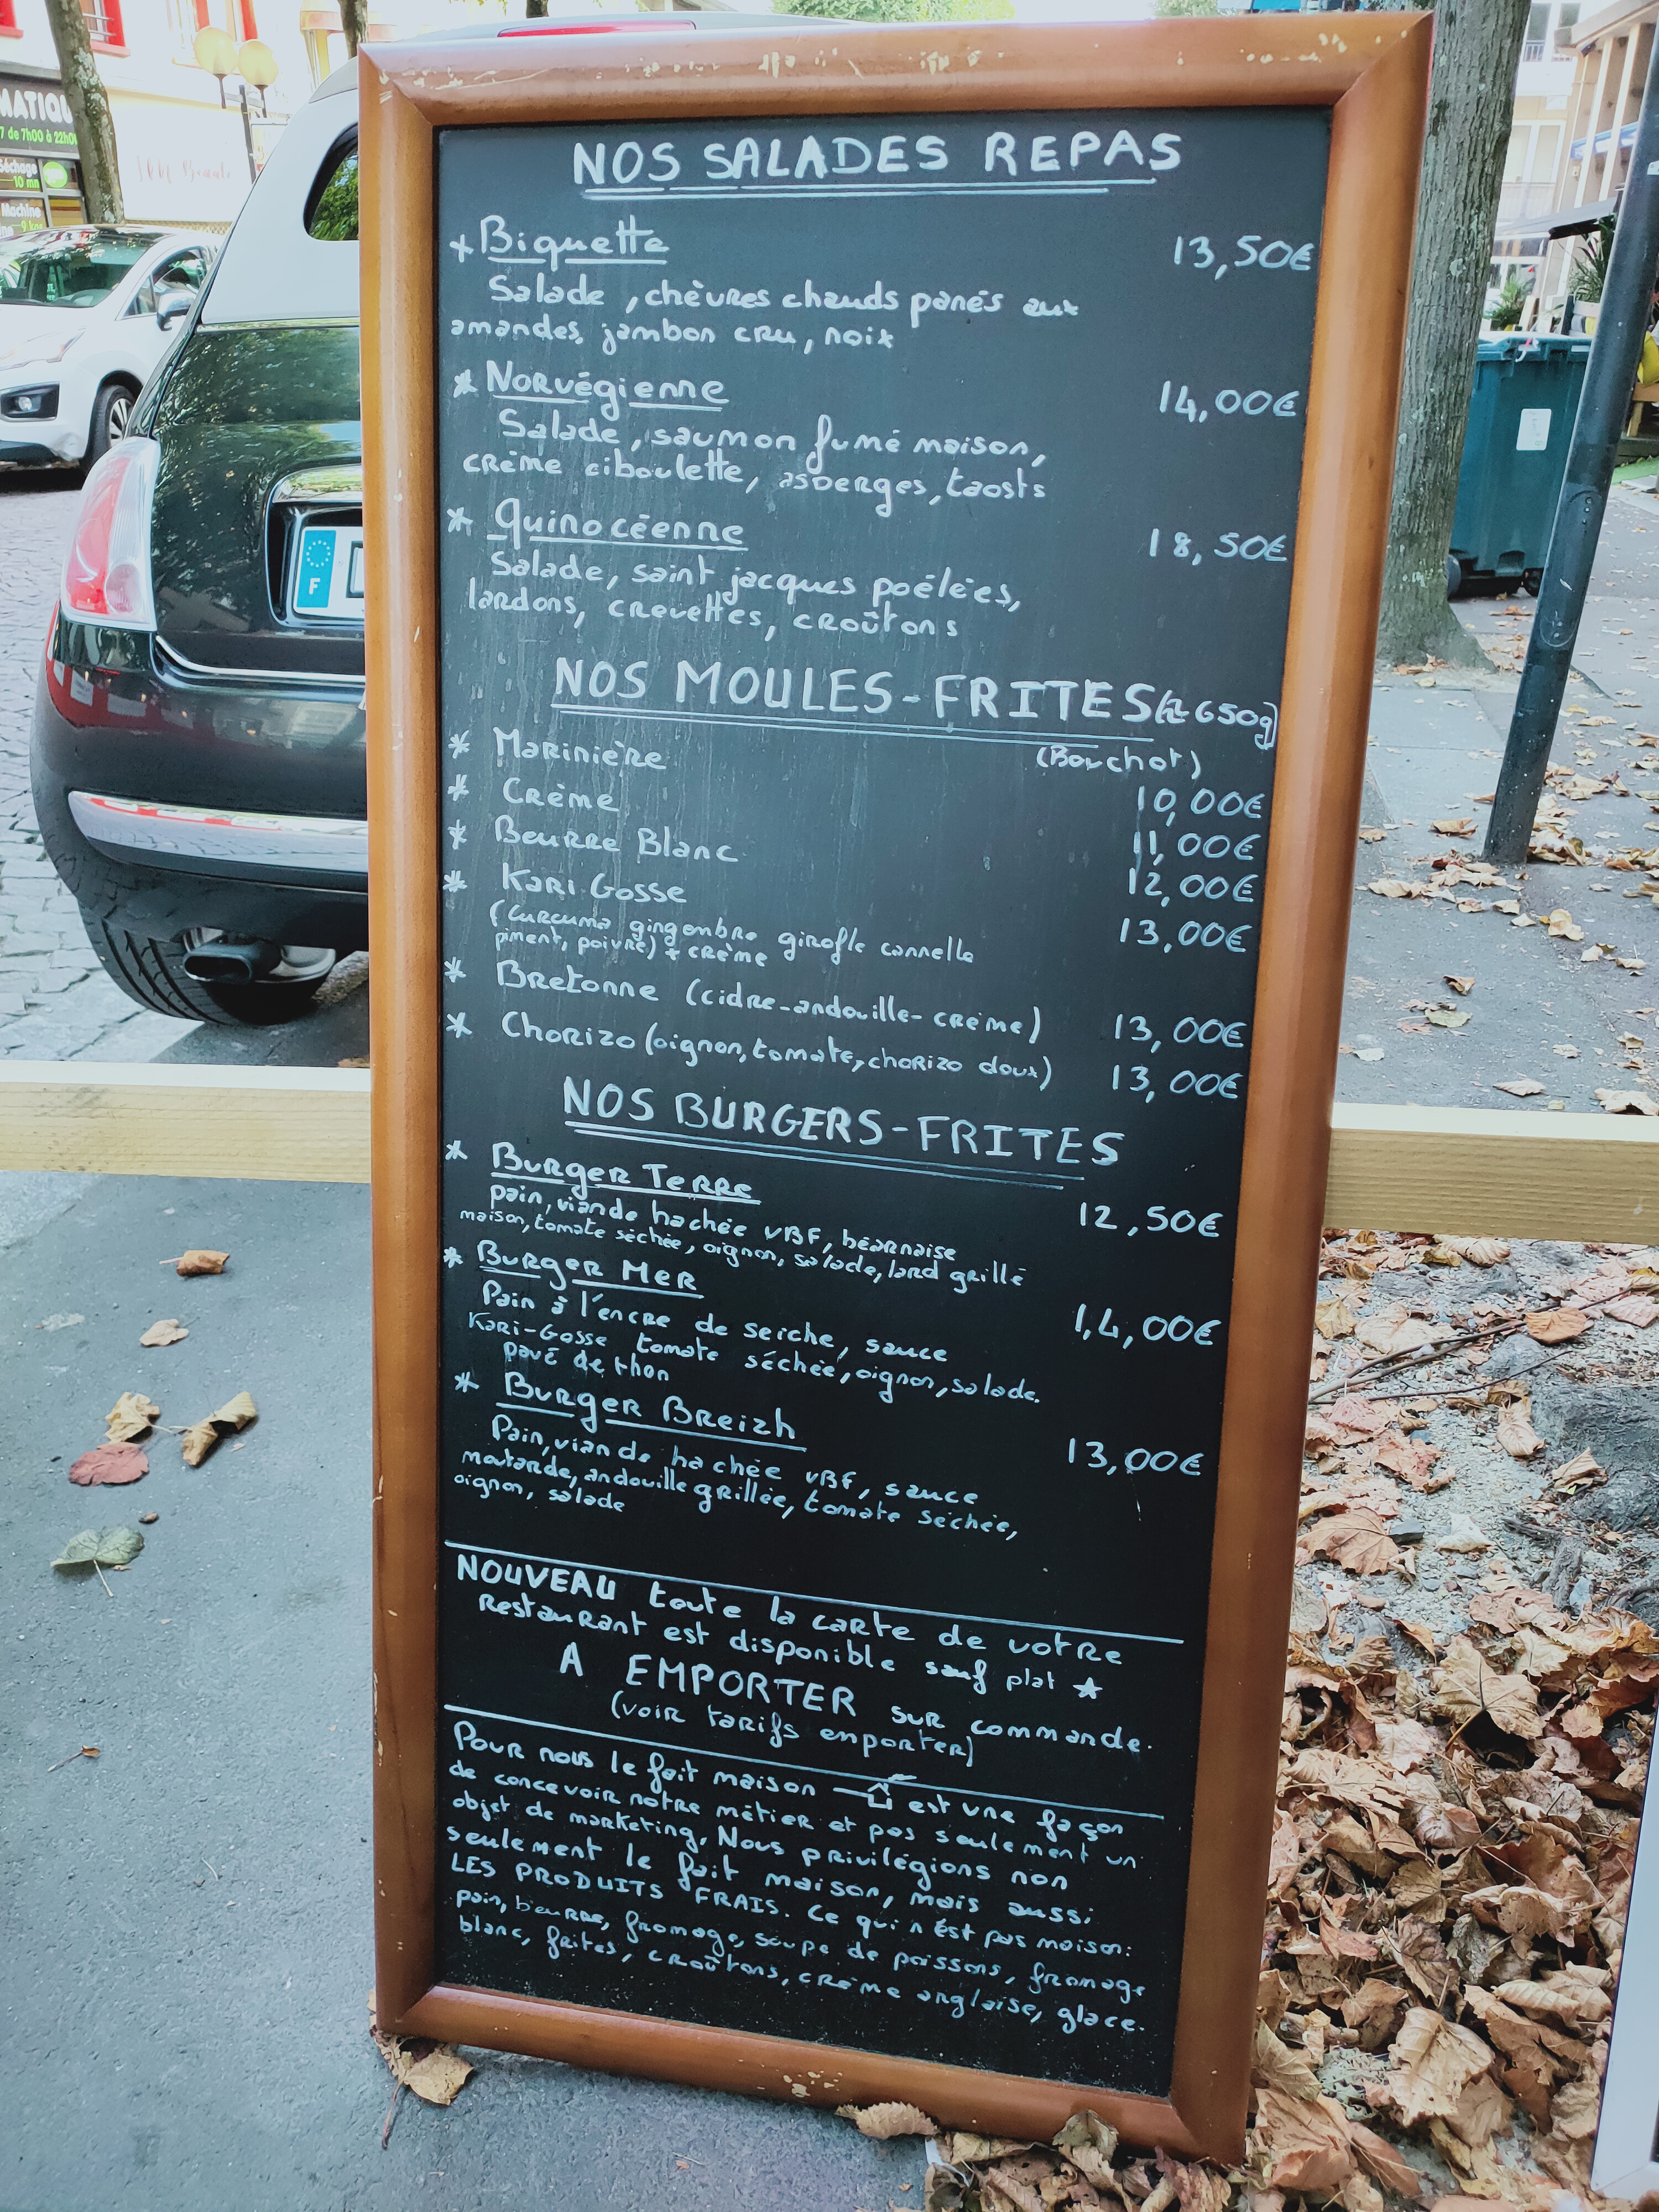 MATIQU
7 de 7h00 à 22h0
Séchage
10 mn
Machine
9 kg
F
NOS SALADES REPAS
* Biquette 13,50€
Salade, chèvres chauds panés aux
amandes, jambon cru, noix
* Norvégienne 14,00€
Salade, saumon fumé maison,
crème ciboulette, asperges, taosts
* Quinocéenne 18,50€
Salade, saint jacques poêlées,
lardons, crevettes, croûtons
NOS MOULES-FRITES (≈650g)
* Marinière (Bouchot)
10,00€
* Crème 11,00€
* Beurre Blanc 12,00€
* Kari Gosse 13,00€
(Curcuma gingembre girofle cannelle
piment, poivre) + crème
* Bretonne (cidre-andouille-crème) 13,00€
* Chorizo (oignon, tomate, chorizo doux) 13,00€
NOS BURGERS-FRITES
* Burger Terre 12,50€
pain, viande hachée VBF, béarnaise
maison, tomate séchée, oignon, salade, lard grillé
* Burger Mer 14,00€
Pain à l'encre de seiche, sauce
Kari-Gosse tomate séchée, oignon, salade.
pavé de thon
* Burger Breizh 13,00€
Pain, viande hachée VBF, sauce
moutarde, andouille grillée, tomate séchée,
oignon, salade
NOUVEAU toute la carte de votre
restaurant est disponible sauf plat ★
A EMPORTER sur commande.
(voir tarifs emporter)
Pour nous le fait maison est une façon
de concevoir notre métier et pas seulement un
objet de marketing. Nous privilégions non
seulement le fait maison, mais aussi
LES PRODUITS FRAIS. Ce qui n'est pas maison:
pain, beurre, fromage, soupe de poissons, fromage
blanc, frites, croûtons, crème anglaise, glace.